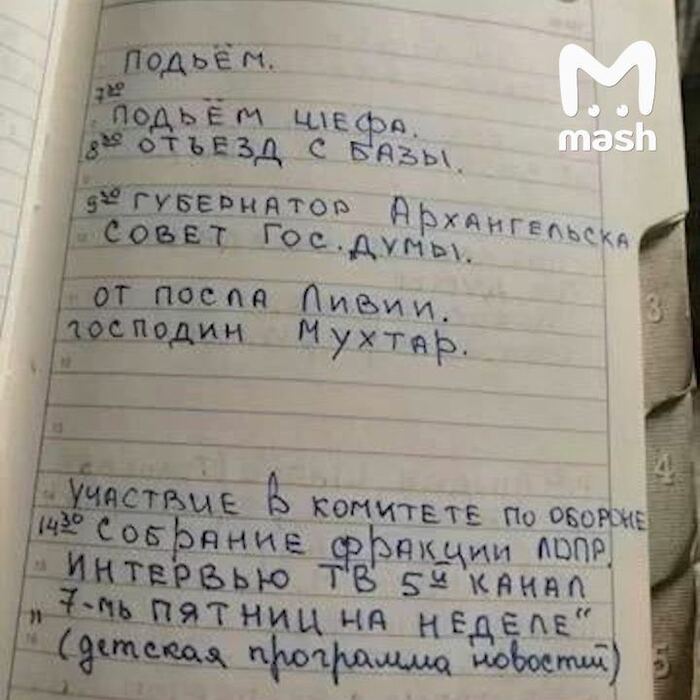 mash
ПОДЬЁМ.
7³⁰
ПОДЬЁМ ШЕФА.
8³⁰ ОТЪЕЗД С БАЗЫ.
9³⁰ ГУБЕРНАТОР АРХАНГЕЛЬСКА
СОВЕТ ГОС. ДУМЫ.
ОТ ПОСЛА ЛИВИИ.
ГОСПОДИН МУХТАР.
УЧАСТВИЕ В КОМИТЕТЕ ПО ОБОРОНЕ
14³⁰ СОБРАНИЕ ФРАКЦИИ ЛДПР.
ИНТЕРВЬЮ ТВ 5й КАНАЛ
„7-МЬ ПЯТНИЦ НА НЕДЕЛЕ“
(детская программа новостей)
3
4
5